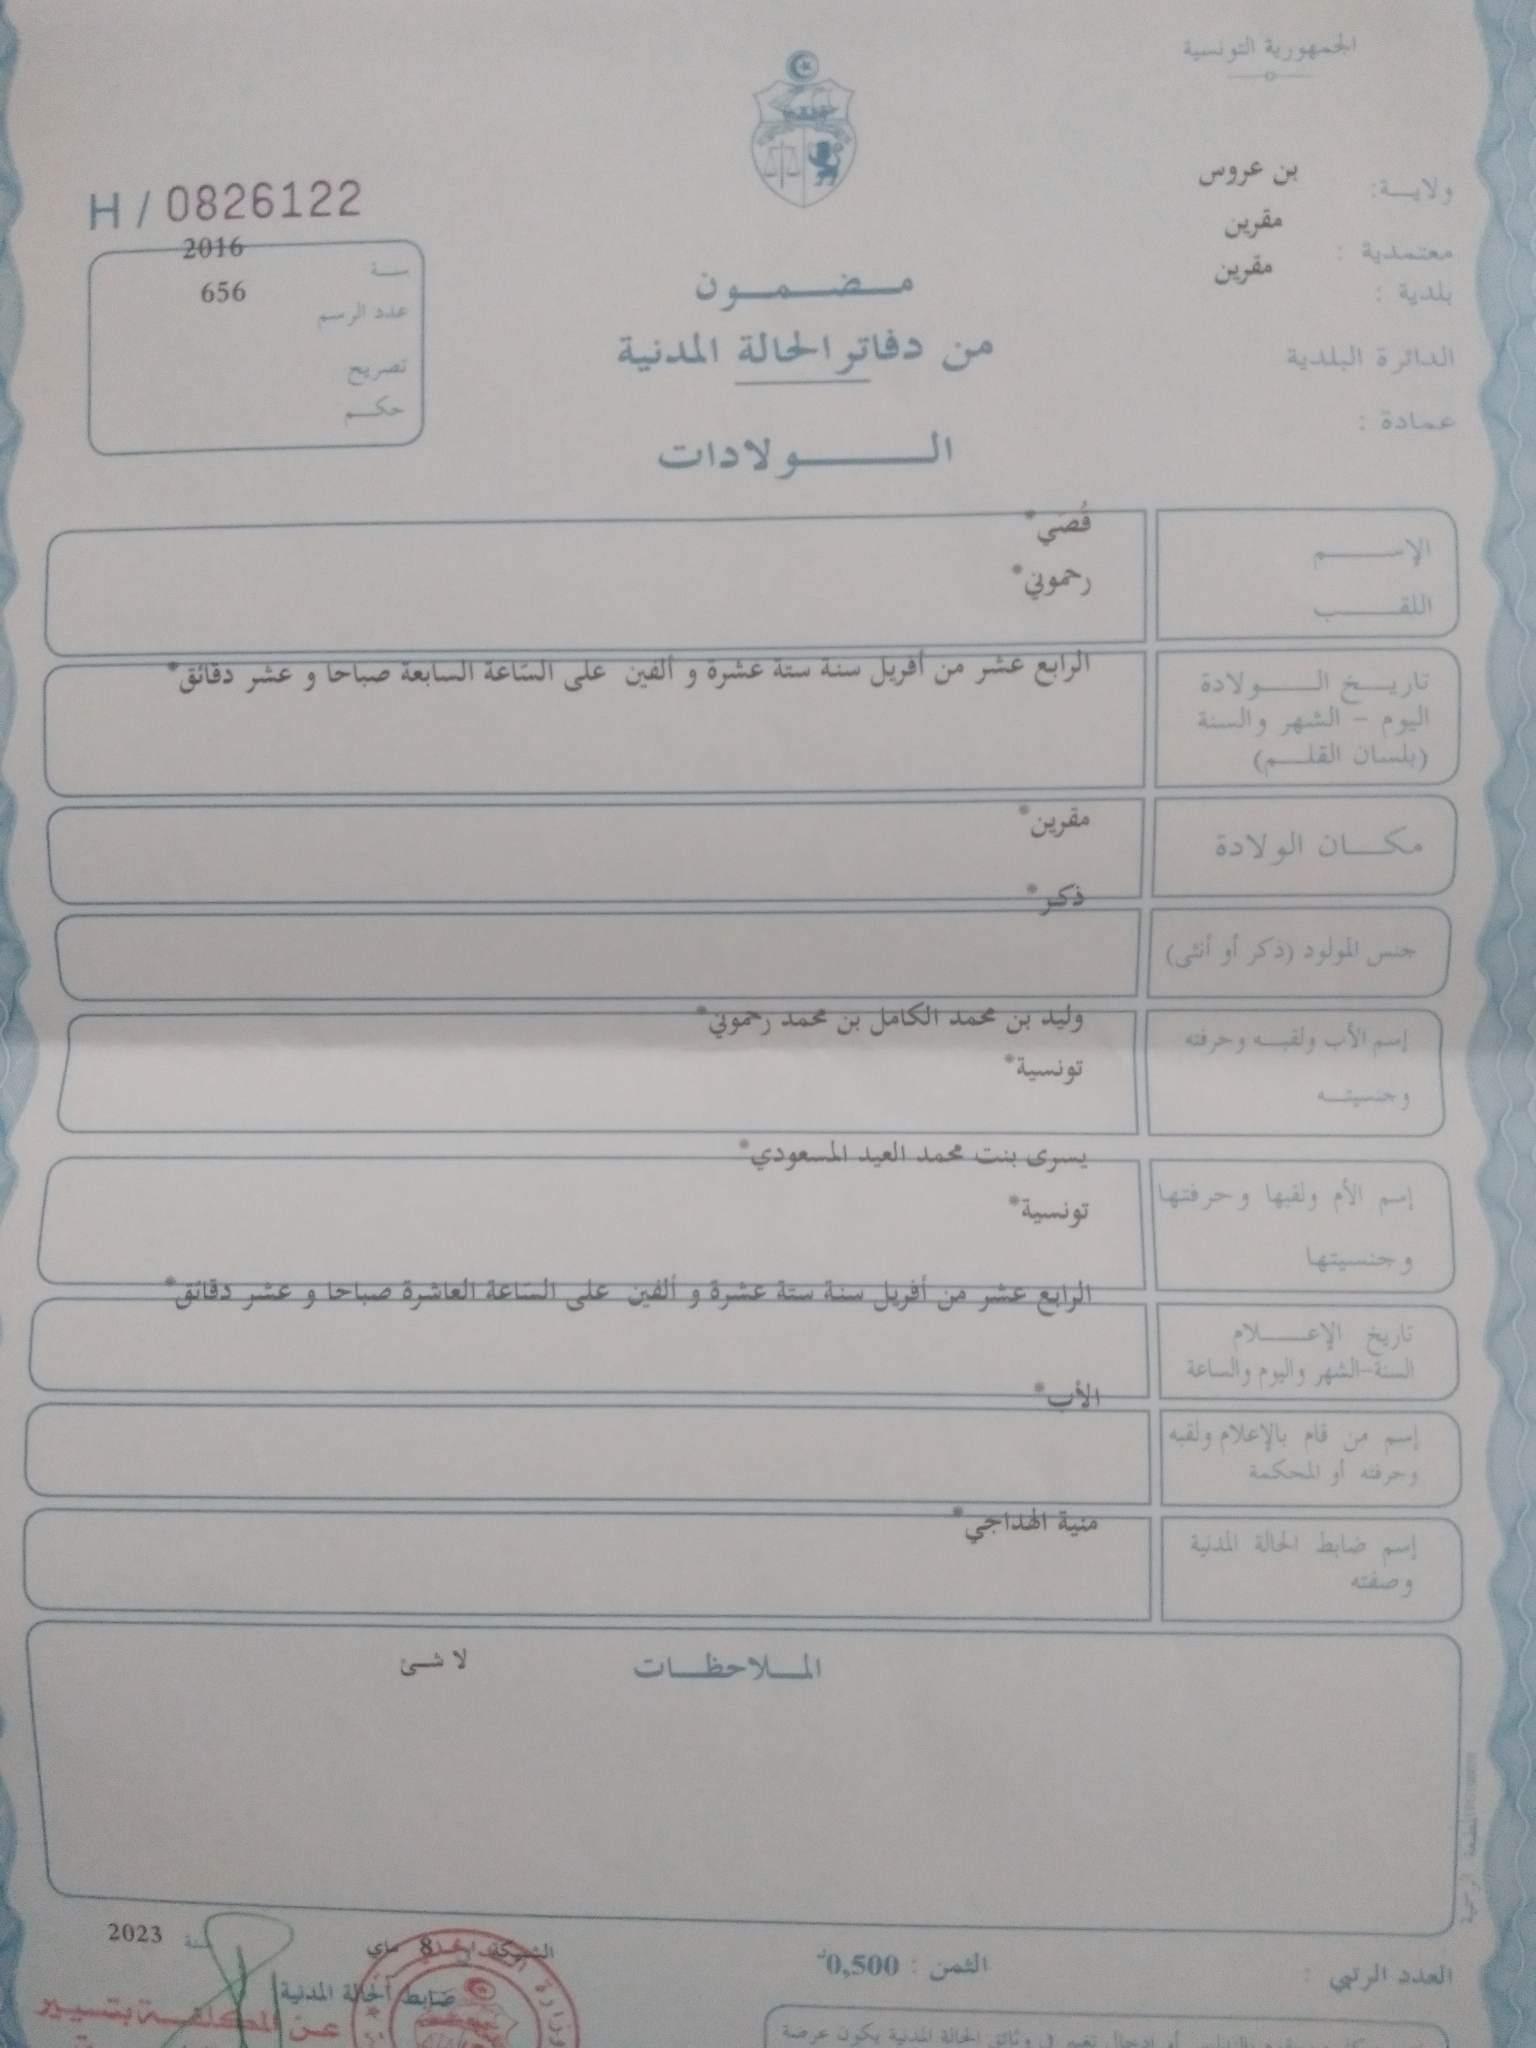 الجمهورية التونسية
ولايــة: بن عروس
معتمدية : مقرين
بلدية : مقرين
الدائرة البلدية
عمادة :
H / 0826122
سنة 2016
عدد الرسم 656
تصريح
حكم
مضمون
من دفاتر الحالة المدنية
الولادات
الإسم قُصَي*
اللقب رحموني*
تاريخ الولادة الرابع عشر من أفريل سنة ستة عشرة و ألفين على السّاعة السابعة صباحا و عشر دقائق*
اليوم - الشهر والسنة
(بلسان القلم)
مكان الولادة مقرين*
جنس المولود (ذكر أو أنثى) ذكر*
إسم الأب ولقبه وحرفته وليد بن محمد الكامل بن محمد رحموني*
وجنسيته تونسية*
إسم الأم ولقبها وحرفتها يسرى بنت محمد العيد المسعودي*
وجنسيتها تونسية*
تاريخ الإعلام الرابع عشر من أفريل سنة ستة عشرة و ألفين على السّاعة العاشرة صباحا و عشر دقائق*
السنة-الشهر واليوم والساعة
إسم من قام بالإعلام ولقبه الأب*
وحرفته أو المحكمة
إسم ضابط الحالة المدنية منية الهداجي*
وصفته
الملاحظات لا شئ
العدد الرتبي :
الثمن : 0,500د
8 ماي سنة 2023
ضابط الحالة المدنية
عن المكلفة بتسيير